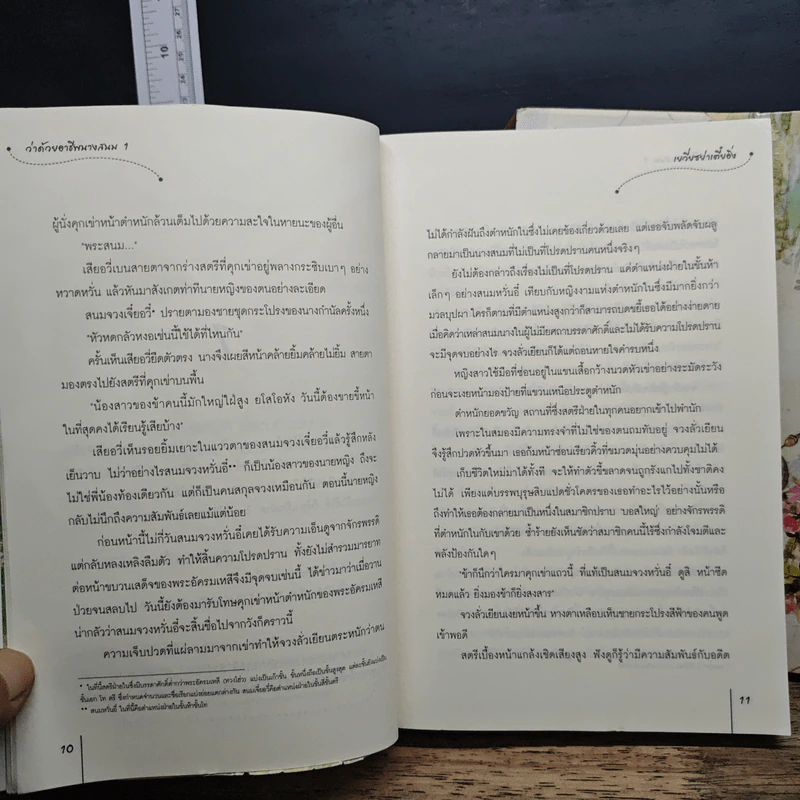 ว่าด้วยอาชีพนางสนม 1
ผู้นั่งคุกเข่าหน้าตำหนักล้วนเต็มไปด้วยความสะใจในหายนะของผู้อื่น
"พระสนม..."
เสียอวี่เบนสายตาจากร่างสตรีที่คุกเข่าอยู่พลางกระซิบเบาๆ อย่าง
หวาดหวั่น แล้วหันมาสังเกตท่าทีนายหญิงของตนอย่างละเอียด
สนมจวงเจี๋ยอวี๋* ปรายตามองชายชุดกระโปรงของนางกำนัลครั้งหนึ่ง
"หัวหดกลัวหงอเช่นนี้ใช้ได้ที่ไหนกัน"
ครั้นเห็นเสียอวี่ยืดตัวตรง นางจึงเผยสีหน้าคล้ายยิ้มคล้ายไม่ยิ้ม สายตา
มองตรงไปยังสตรีที่คุกเข่าบนพื้น
"น้องสาวของข้าคนนี้มักใหญ่ใฝ่สูง ยโสโอหัง วันนี้ต้องขายขี้หน้า
ในที่สุดคงได้เรียนรู้เสียบ้าง"
เสียอวี่เห็นรอยยิ้มเยาะในแววตาของสนมจวงเจี๋ยอวี๋แล้วรู้สึกหลัง
เย็นวาบ ไม่ว่าอย่างไรสนมจวงหวั่นอี๋** ก็เป็นน้องสาวของนายหญิง ถึงจะ
ไม่ใช่พี่น้องท้องเดียวกัน แต่ก็เป็นคนสกุลจวงเหมือนกัน ตอนนี้นายหญิง
กลับไม่นึกถึงความสัมพันธ์เลยแม้แต่น้อย
ก่อนหน้านี้ไม่กี่วันสนมจวงหวั่นอี๋เคยได้รับความเอ็นดูจากจักรพรรดิ
แต่กลับหลงเหลิงลืมตัว ทำให้สิ้นความโปรดปราน ทั้งยังไม่สำรวมมารยาท
ต่อหน้าขบวนเสด็จของพระอัครมเหสีจึงมีจุดจบเช่นนี้ ได้ข่าวมาว่าเมื่อวาน
ป่วยจนสลบไป วันนี้ยังต้องมารับโทษคุกเข่าหน้าตำหนักของพระอัครมเหสี
น่ากลัวว่าสนมจวงหวั่นอี๋จะสิ้นชื่อไปจากวังก็คราวนี้
ความเจ็บปวดที่แผ่ลามมาจากเข่าทำให้จวงลั่วเยียนตระหนักว่าตน
* ในที่นี้สตรีฝ่ายในซึ่งมีบรรดาศักดิ์ต่ำกว่าพระอัครมเหสี (หวงโฮ่ว) แบ่งเป็นเก้าชั้น ชั้นหนึ่งถือเป็นชั้นสูงสุด แต่ละชั้นยังแบ่งเป็น
ชั้นเอก โท ตรี ซึ่งกำหนดจำนวนและชื่อเรียกแบ่งย่อยแตกต่างกัน สนมเจี๋ยอวี๋คือตำแหน่งฝ่ายในชั้นสี่ชั้นตรี
** สนมหวั่นอี๋ ในที่นี้คือตำแหน่งฝ่ายในชั้นห้าชั้นโท
10
เยวี่ยซย่าเตี๋ยอิ่ง
ไม่ได้กำลังฝันถึงตำหนักในซึ่งไม่เคยข้องเกี่ยวด้วยเลย แต่เธอจับพลัดจับผลู
กลายมาเป็นนางสนมที่ไม่เป็นที่โปรดปรานคนหนึ่งจริงๆ
ยังไม่ต้องกล่าวถึงเรื่องไม่เป็นที่โปรดปราน แค่ตำแหน่งฝ่ายในชั้นห้า
เล็กๆ อย่างสนมหวั่นอี๋ เทียบกับหญิงงามแห่งตำหนักในซึ่งมีมากยิ่งกว่า
มวลบุปผา ใครก็ตามที่มีตำแหน่งสูงกว่าก็สามารถบดขยี้เธอได้อย่างง่ายดาย
เมื่อคิดว่าเหล่าสนมนางในผู้ไม่มียศถาบรรดาศักดิ์และไม่ได้รับความโปรดปราน
จะมีจุดจบอย่างไร จวงลั่วเยียนก็ได้แต่ถอนหายใจคำรบหนึ่ง
หญิงสาวใช้มือที่ซ่อนอยู่ในแขนเสื้อกว้างนวดหัวเข่าอย่างระมัดระวัง
ก่อนจะเงยหน้ามองป้ายที่แขวนเหนือประตูตำหนัก
ตำหนักยอดขวัญ สถานที่ซึ่งสตรีฝ่ายในทุกคนอยากเข้าไปพำนัก
เพราะในสมองมีความทรงจำที่ไม่ใช่ของตนถมทับอยู่ จวงลั่วเยียน
จึงรู้สึกปวดหัวขึ้นมา เธอก้มหน้าซ่อนเรียวคิ้วที่ขมวดมุ่นอย่างควบคุมไม่ได้
เก็บชีวิตใหม่มาได้ทั้งที จะให้ทำตัวขี้ขลาดจนถูกรังแกไปทั้งชาติคง
ไม่ได้ เพียงแต่บรรพบุรุษสิบแปดชั่วโคตรของเธอทำอะไรไว้อย่างนั้นหรือ
ถึงทำให้เธอต้องกลายมาเป็นหนึ่งในสมาชิกปราบ 'บอสใหญ่' อย่างจักรพรรดิ
ที่ตำหนักในกับเขาด้วย ซ้ำร้ายยังเห็นชัดว่าสมาชิกคนนี้ไร้ซึ่งกำลังโจมตีและ
พลังป้องกันใดๆ
"ข้าก็นึกว่าใครมาคุกเข่าแถวนี้ ที่แท้เป็นสนมจวงหวั่นอี๋ ดูสิ หน้าซีด
หมดแล้ว ยิ่งมองข้าก็ยิ่งสงสาร"
จวงลั่วเยียนเงยหน้าขึ้น หางตาเหลือบเห็นชายกระโปรงสีฟ้าของคนพูด
เข้าพอดี
สตรีเบื้องหน้าแกล้งเชิดเสียงสูง ฟังดูก็รู้ว่ามีความสัมพันธ์กับอดีต
11
10